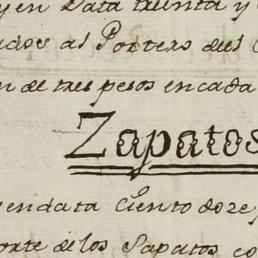 y en Data treinta y
al Portero del
n de tres pesos en cada
Zapatos
en data Ciento doze
porte de los Sapatos co